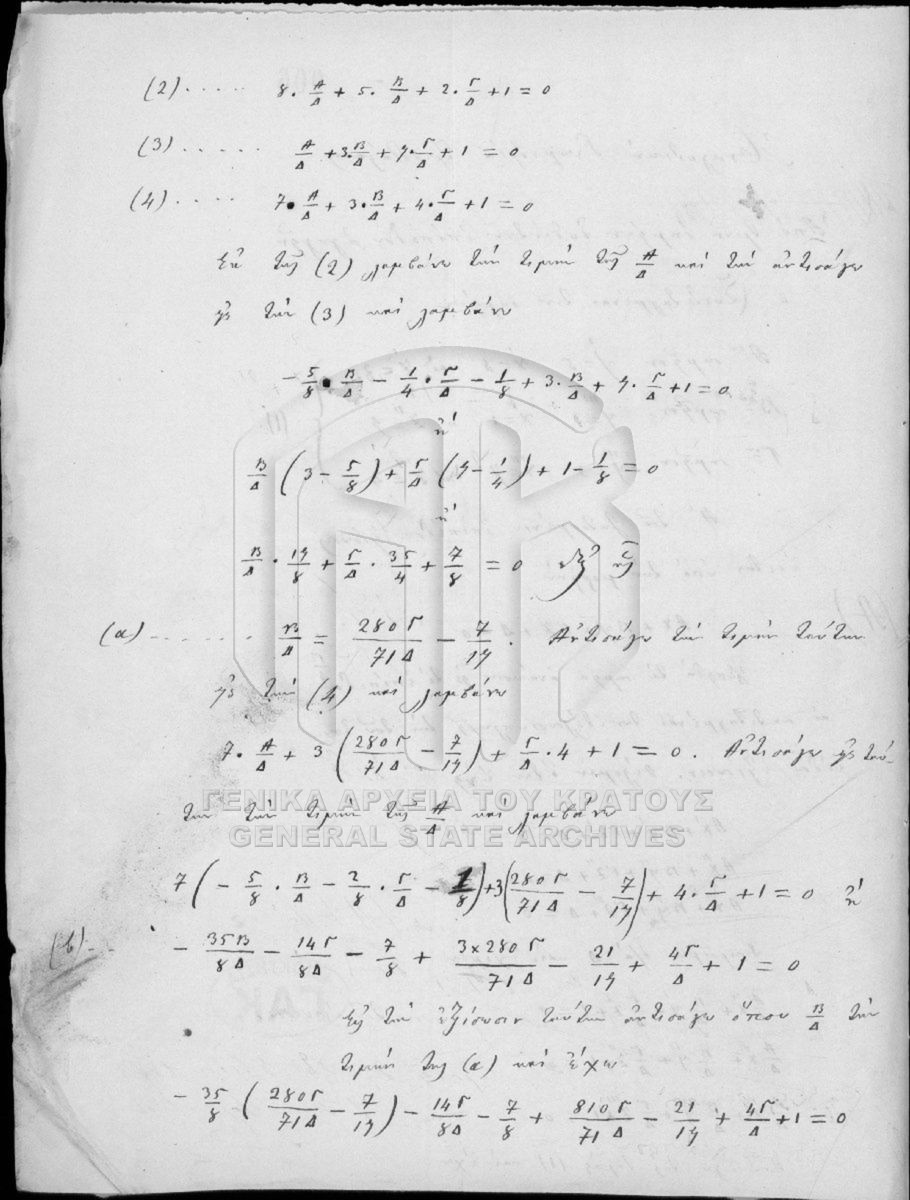 (2) ..... 8. Α/Δ + 5. Β/Δ + 2. Γ/Δ + 1 = 0
(3) ..... Α/Δ + 3. Β/Δ + 9. Γ/Δ + 1 = 0
(4) .... 7. Α/Δ + 3. Β/Δ + 4. Γ/Δ + 1 = 0
Ἐκ τῆς (2) λαμβάνω τὴν τιμὴν τῆς Α/Δ καὶ τὴν ἀντεισάγω
εἰς τὴν (3) καὶ λαμβάνω
- 5/8 . Β/Δ - 1/4 . Γ/Δ - 1/8 + 3. Β/Δ + 9. Γ/Δ + 1 = 0
ἢ
Β/Δ (3 - 5/8) + Γ/Δ (9 - 1/4) + 1 - 1/8 = 0
ἢ
Β/Δ . 19/8 + Γ/Δ . 35/4 + 7/8 = 0 ἐξ ἧς
(α) ........ Β/Δ = 280Γ/71Δ - 7/19 . Ἀντεισάγω τὴν τιμὴν ταύτην
εἰς τὴν (4) καὶ λαμβάνω
7. Α/Δ + 3 (280Γ/71Δ - 7/19) + Γ/Δ . 4 + 1 = 0 . Ἀντεισάγω εἰς ταύ-
την τὴν τιμὴν τῆς Α/Δ καὶ λαμβάνω
ΓΕΝΙΚΑ ΑΡΧΕΙΑ ΤΟΥ ΚΡΑΤΟΥΣ
GENERAL STATE ARCHIVES
7 (- 5/8 . Β/Δ - 2/8 . Γ/Δ - 1/8) + 3 (280Γ/71Δ - 7/19) + 4. Γ/Δ + 1 = 0 ἢ
(b) .. - 35Β/8Δ - 14Γ/8Δ - 7/8 + 3x280Γ/71Δ - 21/19 + 4Γ/Δ + 1 = 0
Εἰς τὴν ἐξίσωσιν ταύτην ἀντεισάγω ὅπου Β/Δ τὴν
τιμὴν της (α) καὶ ἔχω
- 35/8 (280Γ/71Δ - 7/19) - 14Γ/8Δ - 7/8 + 810Γ/71Δ - 21/19 + 4Γ/Δ + 1 = 0